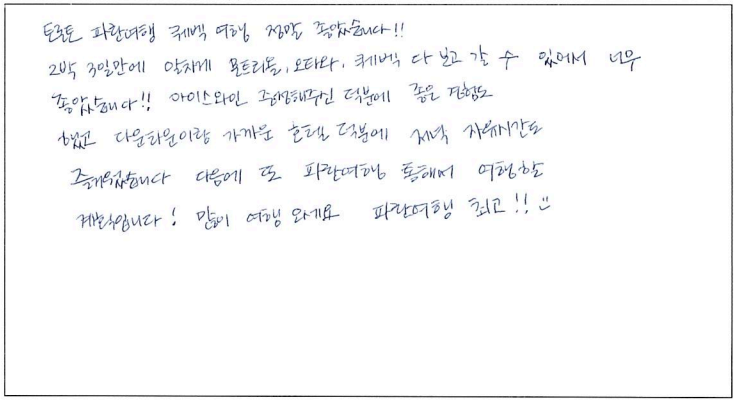 토론토 파란여행 퀘벡 여행 정말 좋았습니다!!
2박 3일만에 알차게 몬트리올, 오타와, 퀘벡 다 보고 갈 수 있어서 너무
좋았습니다!! 아이스와인 주신 덕분에 좋은 경험도
했고 다운타운이랑 가까운 호텔 덕분에 저녁 자유시간도
즐거웠습니다 다음에 또 파란여행 통해서 여행할
계획입니다! 많이 여행 오세요 파란여행 최고!!